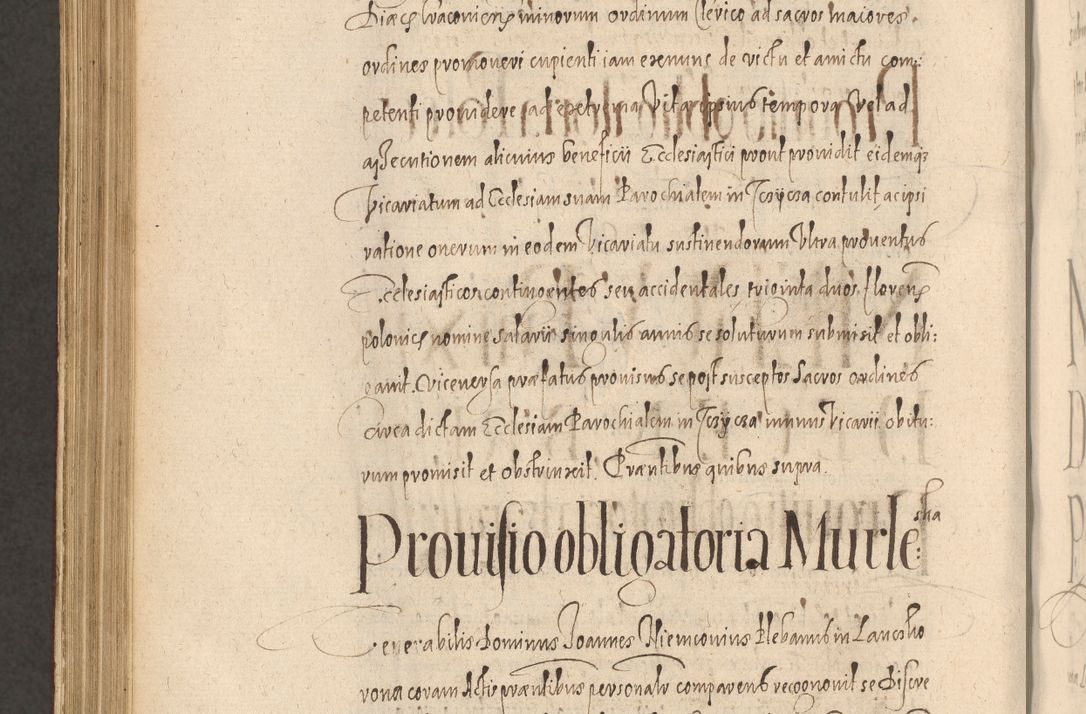 Diæces Cracovien͂ minorum ordinum Clerico ad sacros maiores
ordines promoveri cupienti iam exnunc de victu et amictu com:
petenti providere ad extrema vitæ ipsius tempora vel ad
assecutionem alicuius beneficii Ecclesiastici prout providit eidemq;
Vicariatum ad Ecclesiam suam Parochialem in Trzycza contulit, ac ipsi
ratione onerum in eodem Vicariatu sustinendorum Ultra proventus
Ecclesiasticos contingentes seu accidentales triginta duos floren͂
polonicæ nomine salarii singulis annis se soluturum submisit et obli:
gavit. Viceversa præfatus provisus se post susceptos Sacros ordines
circa dictam Ecclesiam Parochialem in Trzycza munus Vicarii obitu:
rum promisit et obstrinxit. Præntibus quibus supra.
Provisio obligatoria Murle:
ska
Venerabilis Dominus Joannes Niemcovius Plebanus in
rona coram Actis præntibus personalr comparens recognovit se Discre